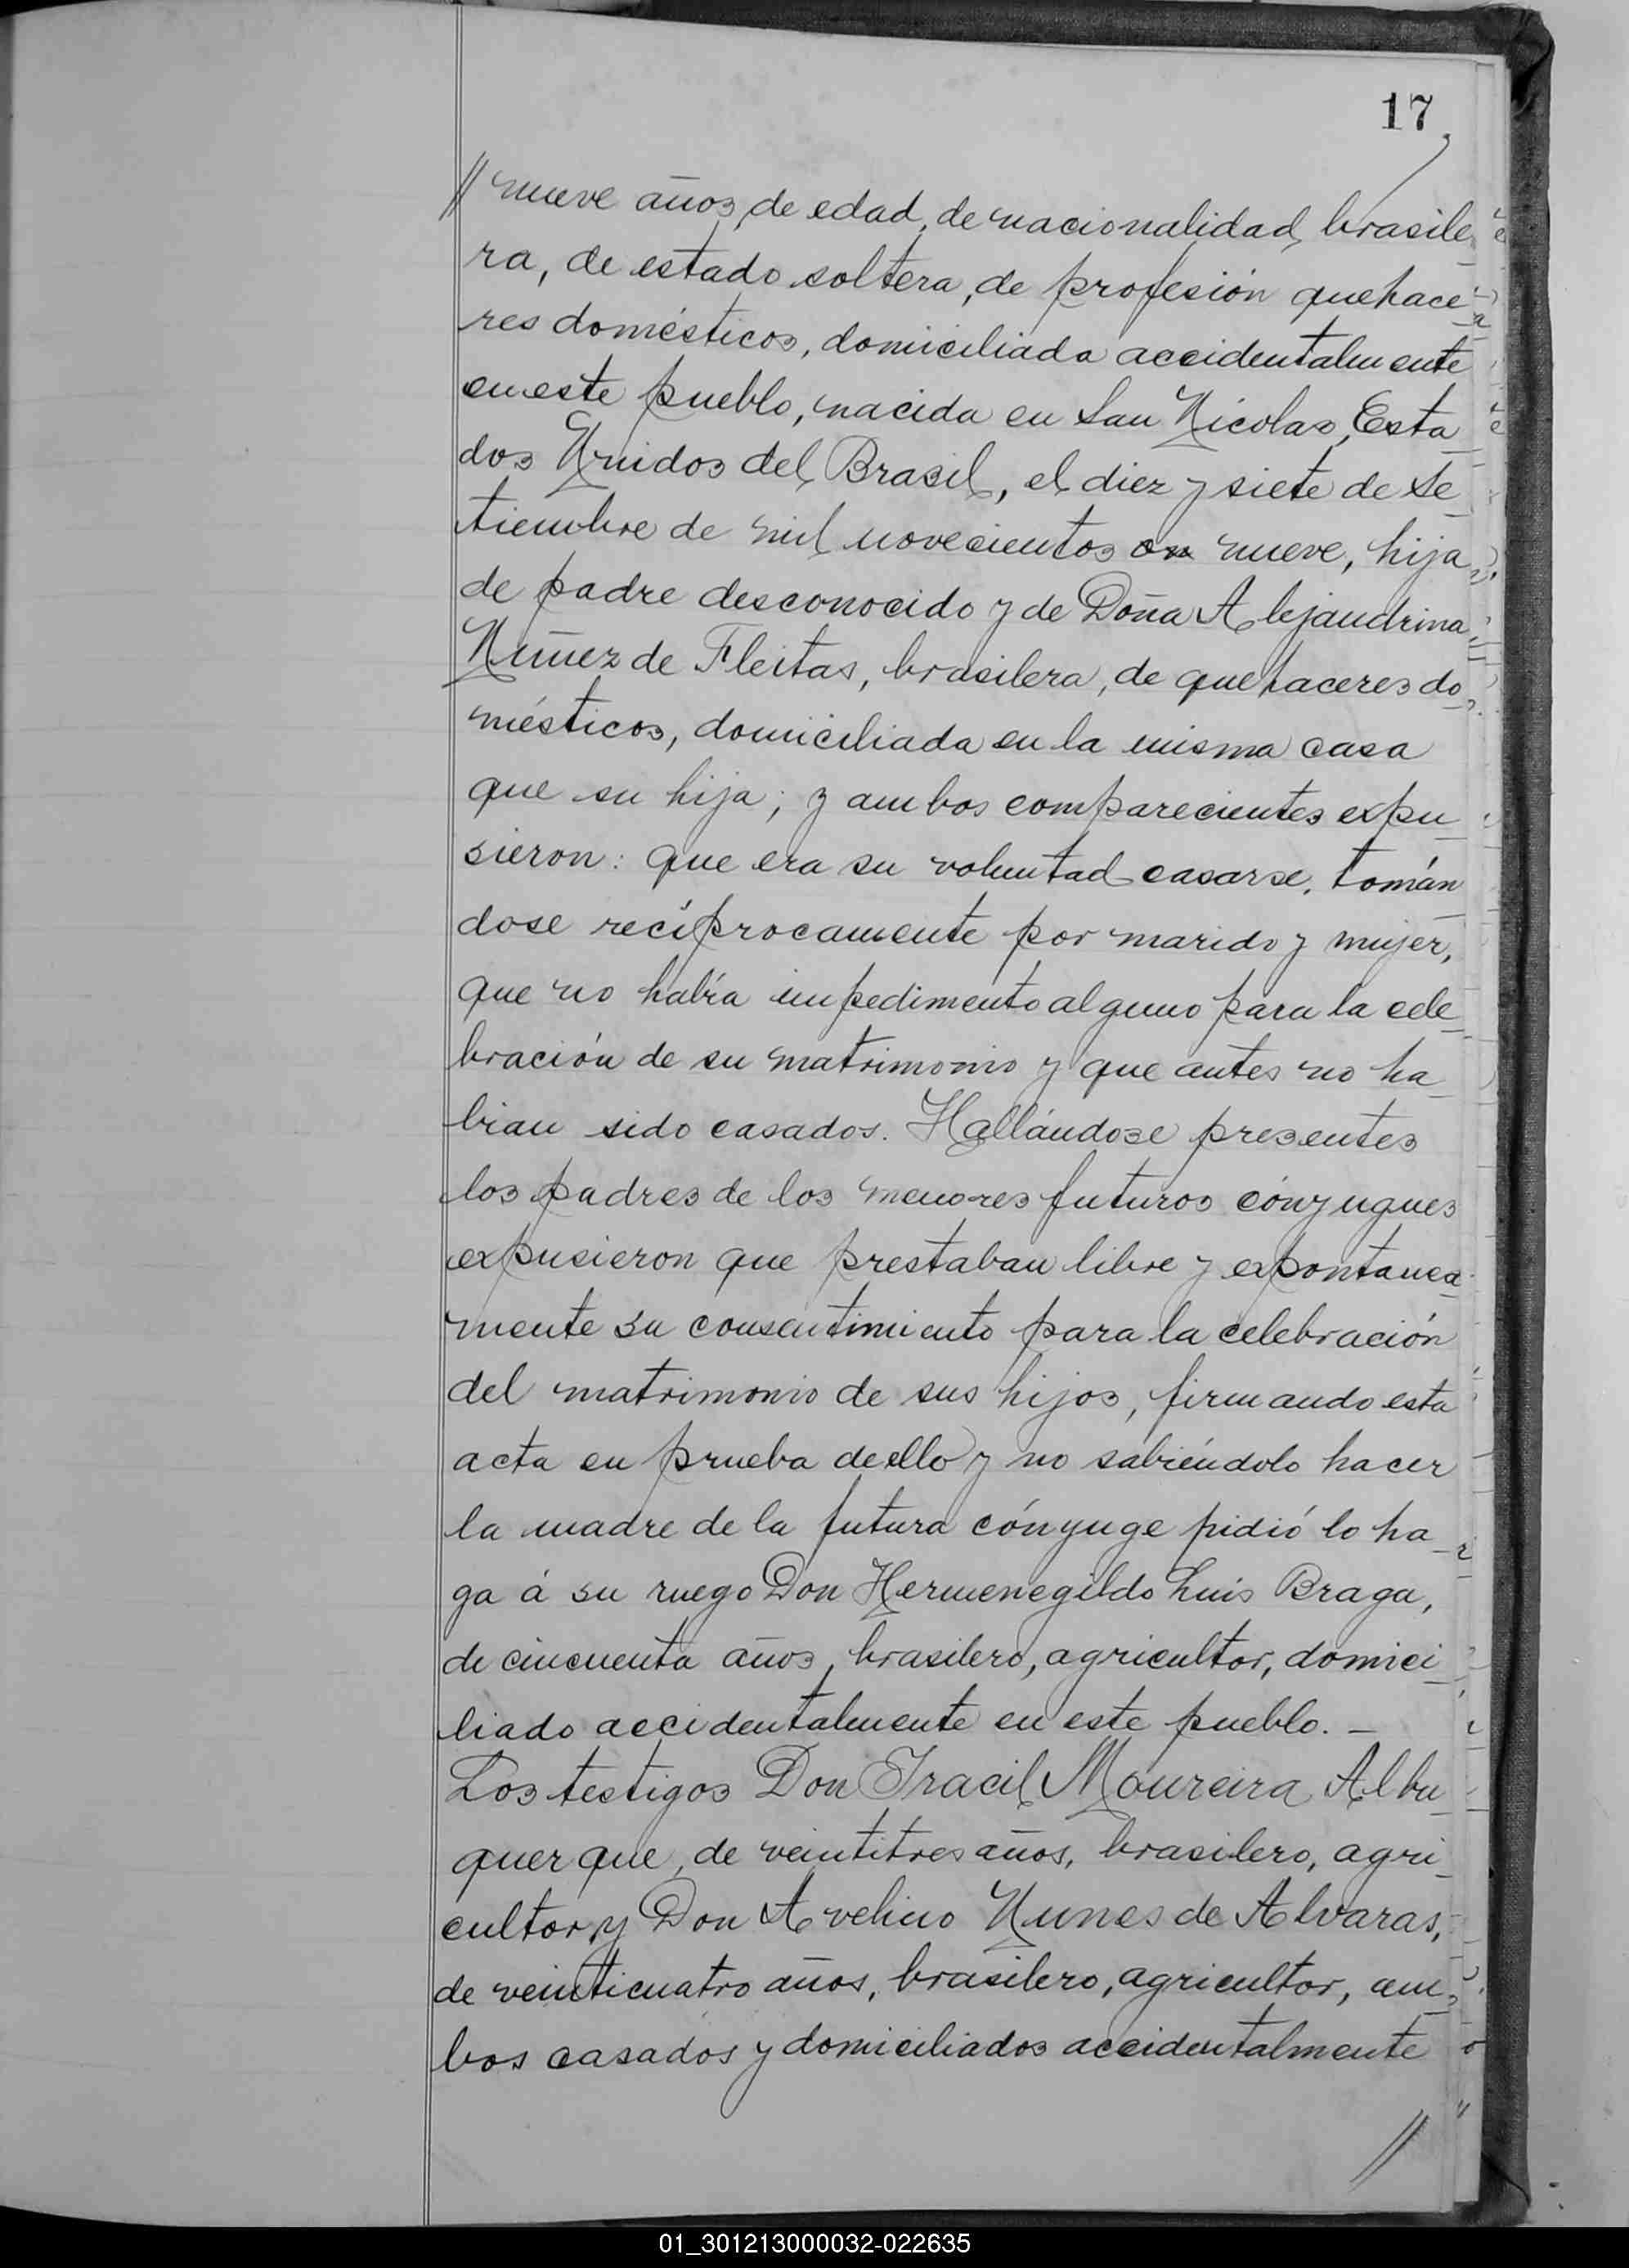 17
// nueve años, de edad, de nacionalidad brasile
ra, de estado soltera, de profesión quehace
res domésticos, domiciliada accidentalmente
en este pueblo, nacida en San Nicolas, Esta
dos Unidos del Brasil, el diez y siete de Se
tiembre de mil novecientos on nueve, hija
de padre desconocido y de Doña Alejandrina
Nuñez de Fleitas, brasilera, de quehaceres do
mésticos, domiciliada en la misma casa
que su hija; y ambos comparecientes expu
sieron: que era su voluntad casarse, tomán
dose recíprocamente por marido y mujer,
que no había impedimento alguno para la cele
bración de su matrimonio y que antes no ha
bian sido casados. Hallándose presentes
los padres de los menores futuros cónyugues
expusieron que prestaban libre y expontanea
mente su consentimiento para la celebración
del matrimonio de sus hijos, firmando esta
acta en prueba de ello y no sabiéndolo hacer
la madre de la futura cónyuge pidió lo ha
ga á su ruego Don Hermenegildo Luis Braga,
de cincuenta años, brasilero, agricultor, domici
liado accidentalmente en este pueblo. —
Los testigos Don Iracil Moureira Albu
querque, de veintitres años, brasilero, agri
cultor, y Don Avelino Nunes de Alvaras,
de veinticuatro años, brasilero, agricultor, am
bos casados y domiciliados accidentalmente
//
01_301213000032-022635